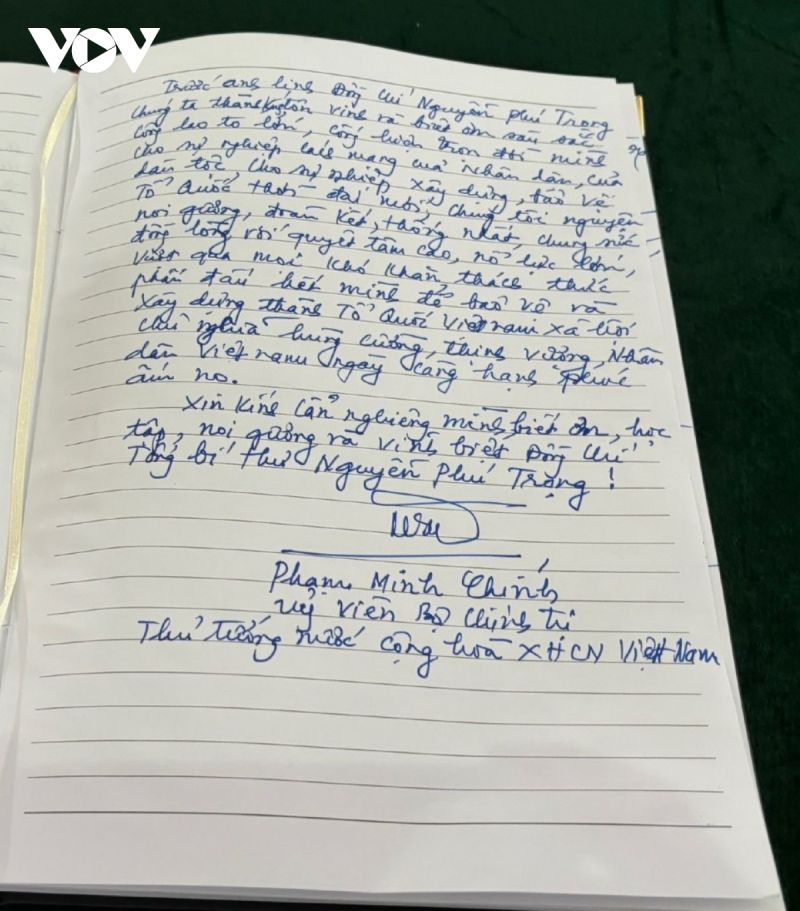 VOV
Trước anh linh Đồng chí Nguyễn Phú Trọng
chúng ta thành kính tôn vinh và biết ơn sâu sắc
công lao to lớn, cống hiến trọn đời mình
cho sự nghiệp cách mạng của Nhân dân, của
dân tộc, cho sự nghiệp xây dựng, bảo vệ
Tổ Quốc thời đại mới. Chúng tôi nguyện
noi gương, đoàn kết, thống nhất, chung sức
đồng lòng với quyết tâm cao, nỗ lực lớn,
vượt qua mọi khó khăn thách thức
phấn đấu hết mình để bảo vệ và
xây dựng thành Tổ Quốc Việt nam xã hội
chủ nghĩa hùng cường, thịnh vượng, Nhân
dân Việt nam ngày càng hạnh phúc
ấm no.
Xin kính cẩn nghiêng mình, biết ơn, học
tập, noi gương và vĩnh biệt Đồng chí
Tổng bí thư Nguyễn Phú Trọng!
Phạm Minh Chính
Uỷ viên Bộ Chính trị
Thủ tướng nước cộng hoà XHCN Việt Nam